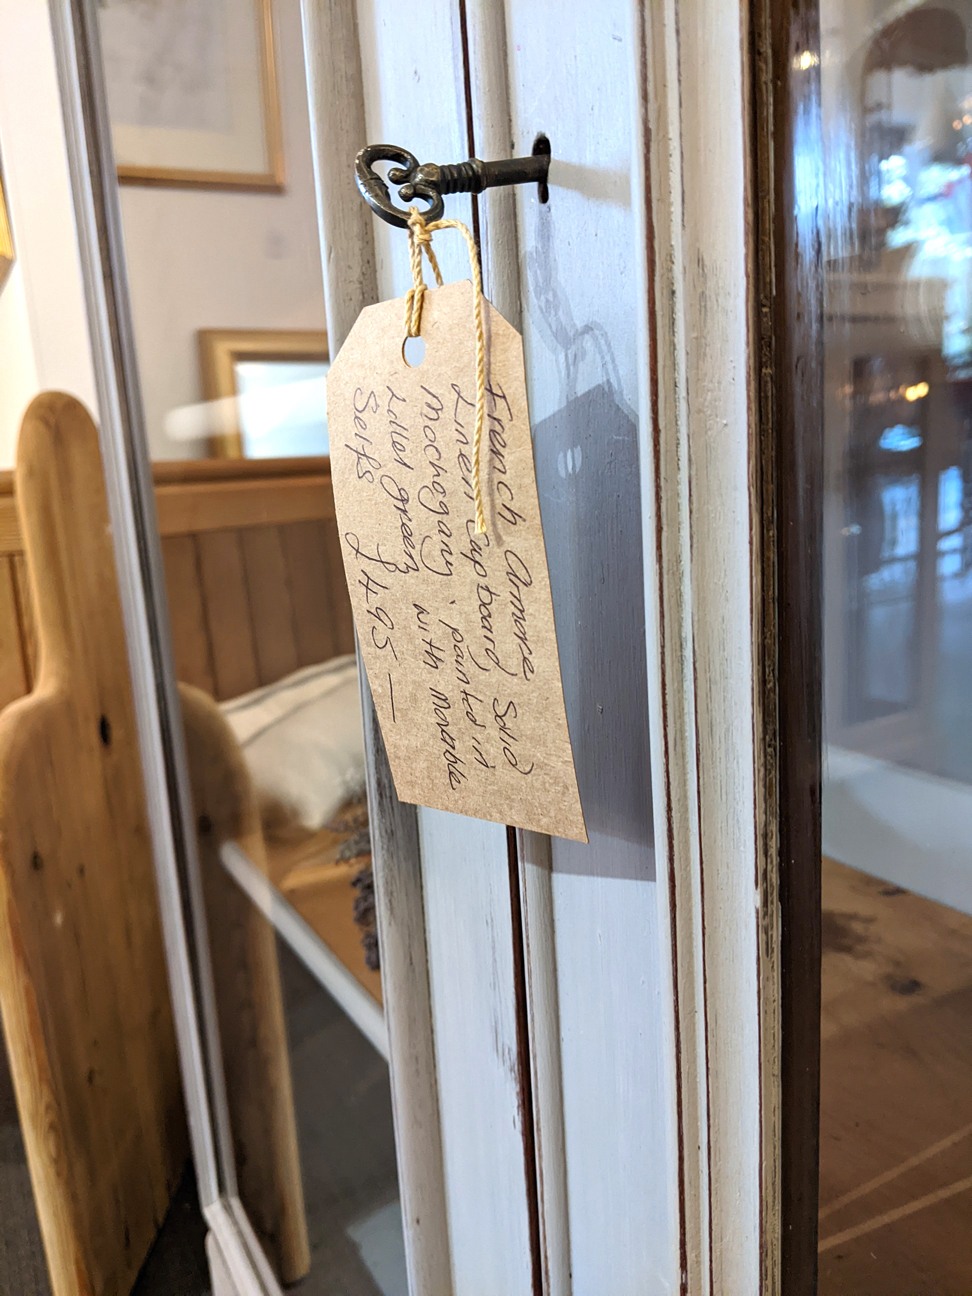 French Armore Solid
Linen Cupboard
Mochogany painted in
Lillet green with Marble
Selfs £495 —